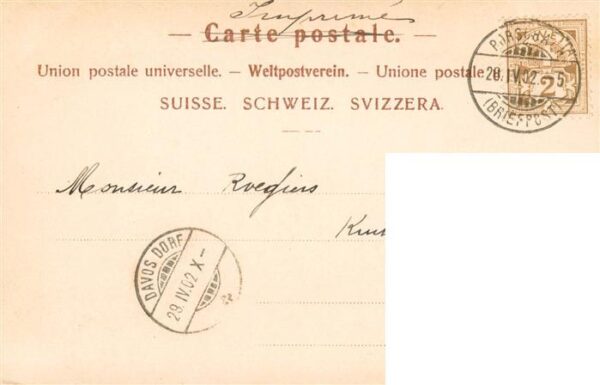 Imprimé
Carte postale.
Union postale universelle. — Weltpostverein. — Unione postale
SUISSE. SCHWEIZ. SVIZZERA.
28.IV.02 - 5
(BRIEFPOST)
2
Monsieur Roegiers
DAVOS DORF
29.IV.02 X-